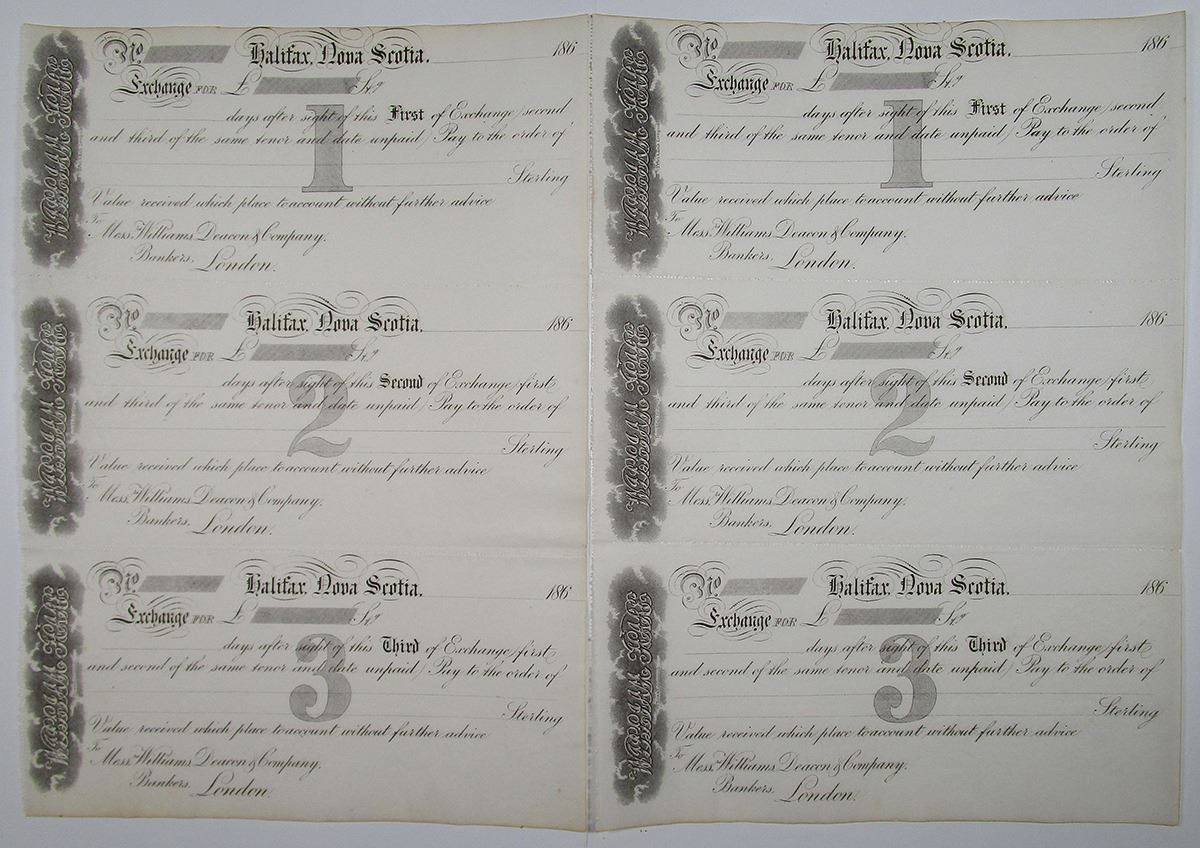 No Halifax, Nova Scotia. 186
Exchange FOR £ Stg
days after sight of this First of Exchange/second
and third of the same tenor and date unpaid/ Pay to the order of
Sterling
Value received which place to account without further advice
To
Mess. Williams Deacon & Company.
Bankers, London.
No Halifax, Nova Scotia. 186
Exchange FOR £ Stg
days after sight of this Second of Exchange/first
and third of the same tenor and date unpaid/ Pay to the order of
Sterling
Value received which place to account without further advice
To
Mess. Williams Deacon & Company.
Bankers, London.
No Halifax, Nova Scotia. 186
Exchange FOR £ Stg
days after sight of this Third of Exchange/first
and second of the same tenor and date unpaid/ Pay to the order of
Sterling
Value received which place to account without further advice
To
Mess. Williams Deacon & Company.
Bankers, London.
1
2
3
No Halifax, Nova Scotia. 186
Exchange FOR £ Stg
days after sight of this First of Exchange/second
and third of the same tenor and date unpaid/ Pay to the order of
Sterling
Value received which place to account without further advice
To
Mess. Williams Deacon & Company.
Bankers, London.
No Halifax, Nova Scotia. 186
Exchange FOR £ Stg
days after sight of this Second of Exchange/first
and third of the same tenor and date unpaid/ Pay to the order of
Sterling
Value received which place to account without further advice
To
Mess. Williams Deacon & Company.
Bankers, London.
No Halifax, Nova Scotia. 186
Exchange FOR £ Stg
days after sight of this Third of Exchange/first
and second of the same tenor and date unpaid/ Pay to the order of
Sterling
Value received which place to account without further advice
To
Mess. Williams Deacon & Company.
Bankers, London.
1
2
3